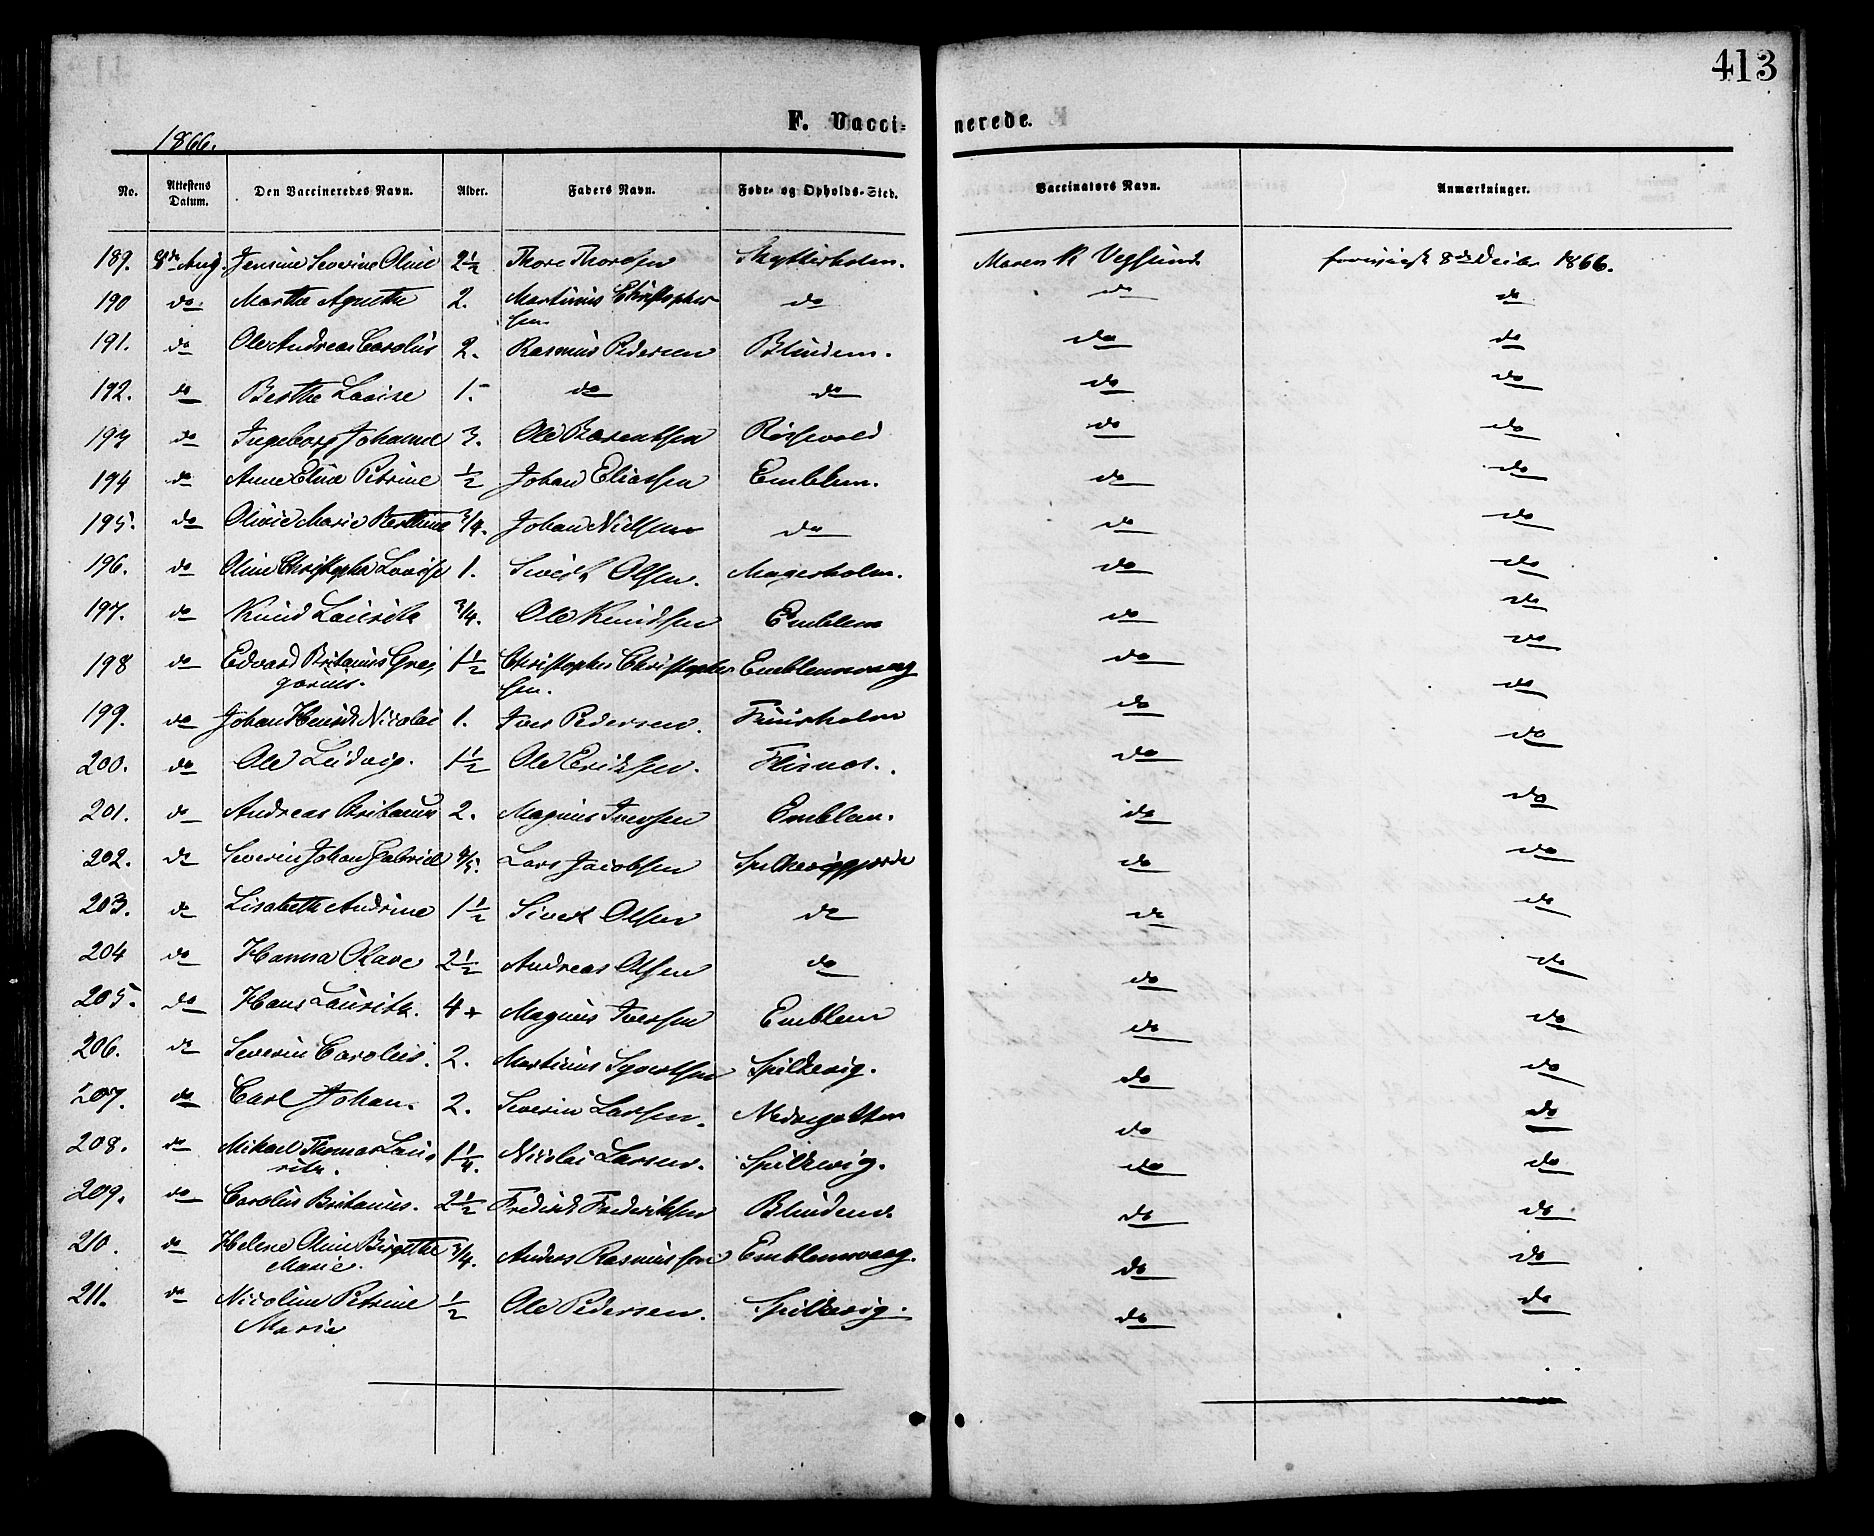 413
F. Vaccinerede.
1866.
No. Attestens Datum. Den Vaccineredes Navn. Alder. Faders Navn. Føde- og Opholds-Sted. Vaccinators Navn. Anmærkninger.
189. 8de Aug. Jensine Severine Oline 2½ Thore Thoresen Maren K Vegsund 8de Decbr 1866.
190 do. Marthe Agnethe 2. Martinus Christopher- do do do
sen
191. do Ole Andreas Carolius 2. Rasmus Pedersen Blindem. do do
192. do Berthe Lovise 1. do do do do
193 do Ingeborg Johanne 3. Ole Barentsen do do
194 do Anne Elise Petrine ½ Johan Eliassen Emblem. do do
195. do Olivie Marie Berthine 3/4. Johan Nielsen do do do
196. do Oline Christopha Lovise 1. Sivert Olsen. Magerholm. do do
197. do Knud Lauritz 3/4. Ole Knudsen Emblem do do
198 do Edvard Britanus Gre- 1½ Christopher Christopher Emblemsvaag do do
gorius. sen.
199. do Johan Henrik Nicolai 1. Iver Pedersen. do do
200. do Ole Ludvig. 1½ Ole Eriksen. Flisnæs. do do
201. do Andreas Britanus 2. Magnus Iversen Emblem. do do
202. do Severin Johan Gabriel Lars Jacobsen do do
203. do Lisabeth Andrine 1½ Sivert Olsen do do do
204 do Hanna Olave 2½ Andreas Olsen do do do
205. do Hans Lauritz. 4 Magnus Iversen Emblem do do
206. do Severin Carolius. 2. Martinus Syvertsen Spilkevig. do do
207. do Carl Johan. 2. Severin Larsen. do do
208. do Mikael Thomas Lau- 1¼. Nicolai Larsen. Spilkevig. do do
ritz.
209. do Carolius Britanus. 2½ Fredrik Frederiksen Blindem. do do
210. do Helene Oline Birgitthe 3/4. Anders Rasmussen Emblemsvaag. do do
Marie.
211. do Nicoline Petrine ½ Ole Pedersen. Spilkevig. do do
Marie